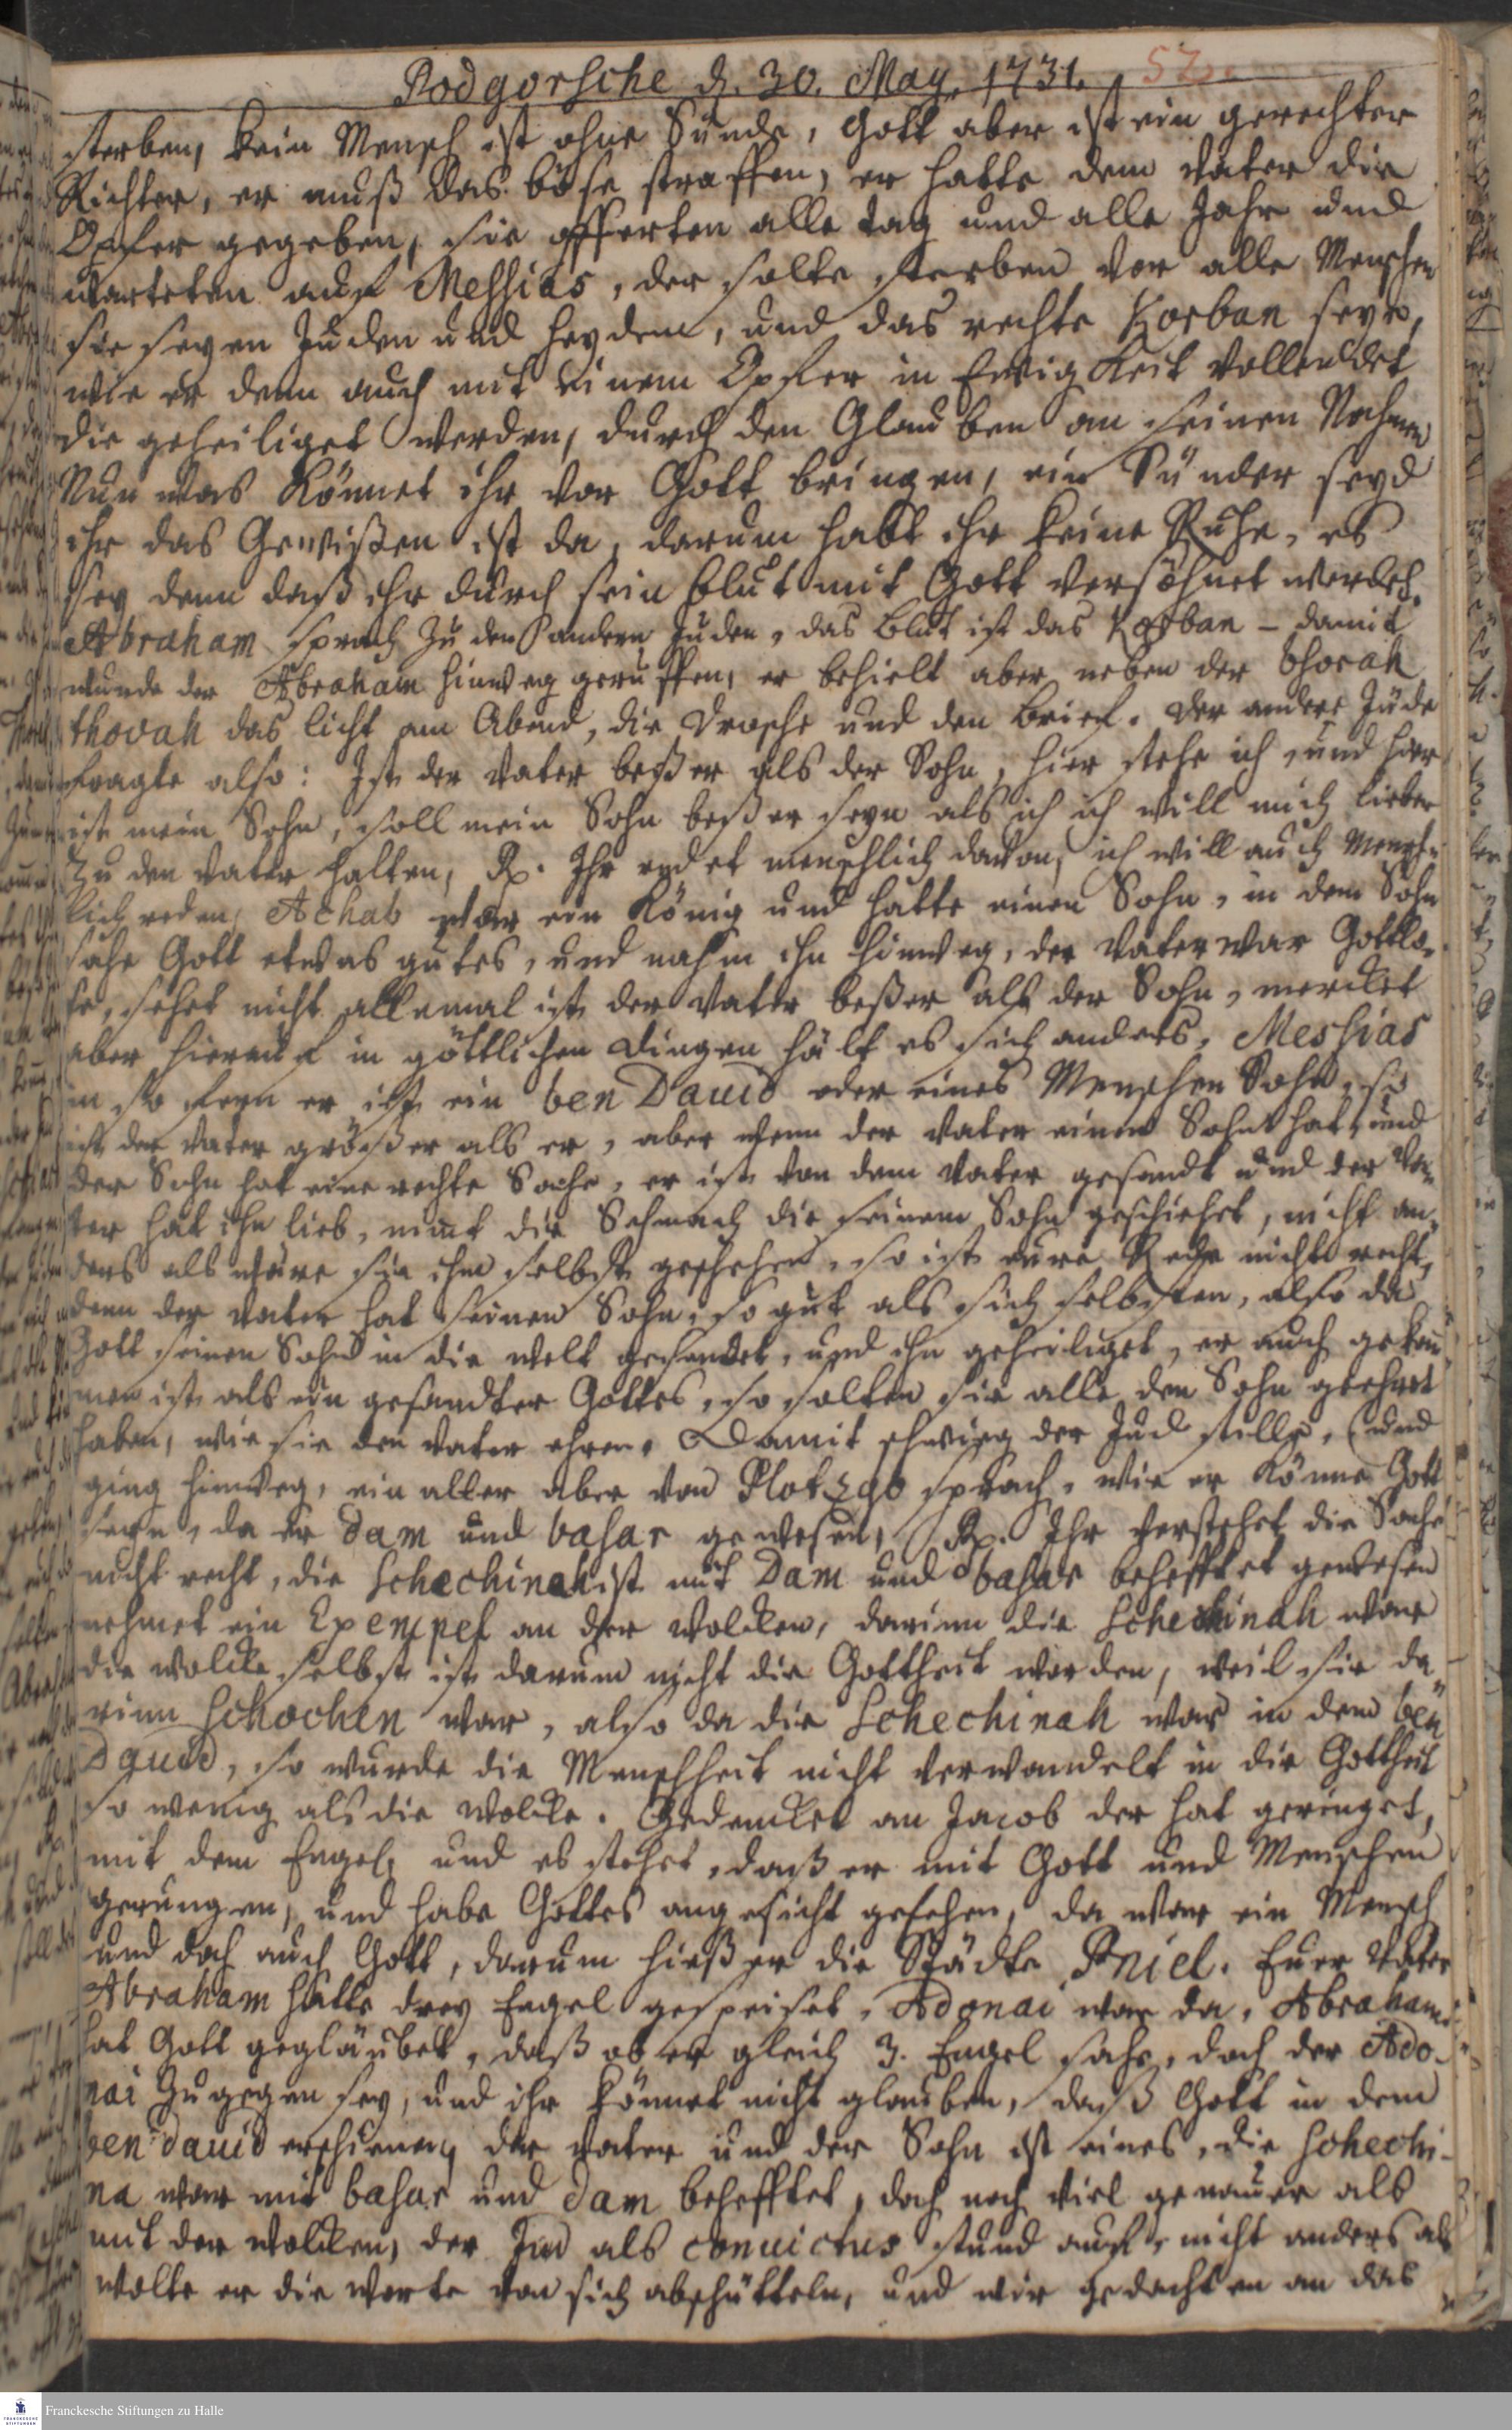 Podgorsche d. 30. May. 1731. 57.
sterben, kein Mensch ist ohne Sünde, Gott aber ist ein gerechter
Richter, er muß das böse straffen, er hatte dem Vater die
Opfer gegeben, sie opfferten alle tag und alle Jahr und
warteten auf Messias, der solte sterben vor alle Menschen
sie seyen Juden und Heyden, und das rechte Korban seyn,
wie er denn auch mit einem Opfer in Ewigkeit vollendet
die geheiliget werden, durch den Glauben an seinen Nahmen
Nun was könnet ihr vor Gott bringen, ein Sünder seyd
ihr das Gewißen ist da, darum habt ihr keine Ruhe, es
sey denn daß ihr durch sein blut mit Gott versöhnet werdet.
Abraham sprach zu den andern Juden, das Blut ist das Korban – damit
wurde der Abraham hinweg geruffen, er behielt aber neben der thorah
thovah das licht am Abend, die Drasche und den Brief. Der andere Jude
fragte also: Ist der Vater beßer als der Sohn, hier stehe ich und hier
ist mein Sohn, soll mein Sohn beßer seyn als ich ich will mich lieber
zu den Vater halten, Rx. Ihr redet menschlich davon, ich will auch mensch-
lich reden, Achab war ein König und hatte einen Sohn, in dem Sohn
sahe Gott etwas gutes, und nahm ihn hinweg, der Vater war Gottlo-
se, sehet nicht allemal ist der Vater beßer als der Sohn, mercket
aber hierauf in göttlichen dingen hält es sich anders, Messias
in so fern er ist ein ben David oder eines Menschen Sohn, so
ist der Vater größer als er, aber wenn der Vater einen Sohn hat, und
der Sohn hat eine rechte Sache, er ist von dem Vater gesandt und der Va-
ter hat ihn lieb, nimt die Schmach die seinem Sohn geschiehet, nicht an-
ders als wäre sie ihm selbst geschehen, so ist eure Rede nicht recht,
denn der Vater hat seinen Sohn, so gut als sich selbsten, also da
Gott seinen Sohn in die welt gesendet, und ihn geheiliget, er auch gekom
men ist als ein gesandter Gottes, so solten sie alle den Sohn geehret
haben, wie sie den Vater ehren. Damit schwieg der Jud stille, und
ging hinweg, ein alter aber von Plotzgo sprach, wie er könne Gott
seyn, da er Dam und basar gewesen, Rx. Ihr verstehet die Sache
nicht recht, die Schechinah ist mit Dam und basar behefftet gewesen
nehmet ein Exempel an der Wolcken, darinn die Schechinah war
die wolcke selbst ist darum nicht die Gottheit worden, weil sie da
rinn Schochen war, also da die Schechinah war in dem ben
David, so wurde die Menschheit nicht verwandelt in die Gottheit
so wenig als die wolcke. Gedencket an Jacob der hat geringet,
mit dem Engel, und es stehet, daß er mit Gott und Menschen
gerungen, und habe Gottes angesicht gesehen, da war ein Mensch
und doch auch Gott, darum hieß er die Städte Pniel. Euer Vater
Abraham hatte drey Engel gespeiset, Adonai war da, Abraham
hat Gott gegläubet, daß ob er gleich 3. Engel sahe, doch der Ado-
nai zugegen sey, und ihr könnet nicht glauben, daß Gott in dem
ben David erschienen, der Vater und der Sohn ist eines, die Schechi-
na war mit basar und Dam behefftet, doch noch viel genauer als
mit der wolcken, der Jud als convictus stund auf, nicht anders als
wolte er die worte von sich abschütteln, und wir gedachten an das
Franckesche Stiftungen zu Halle